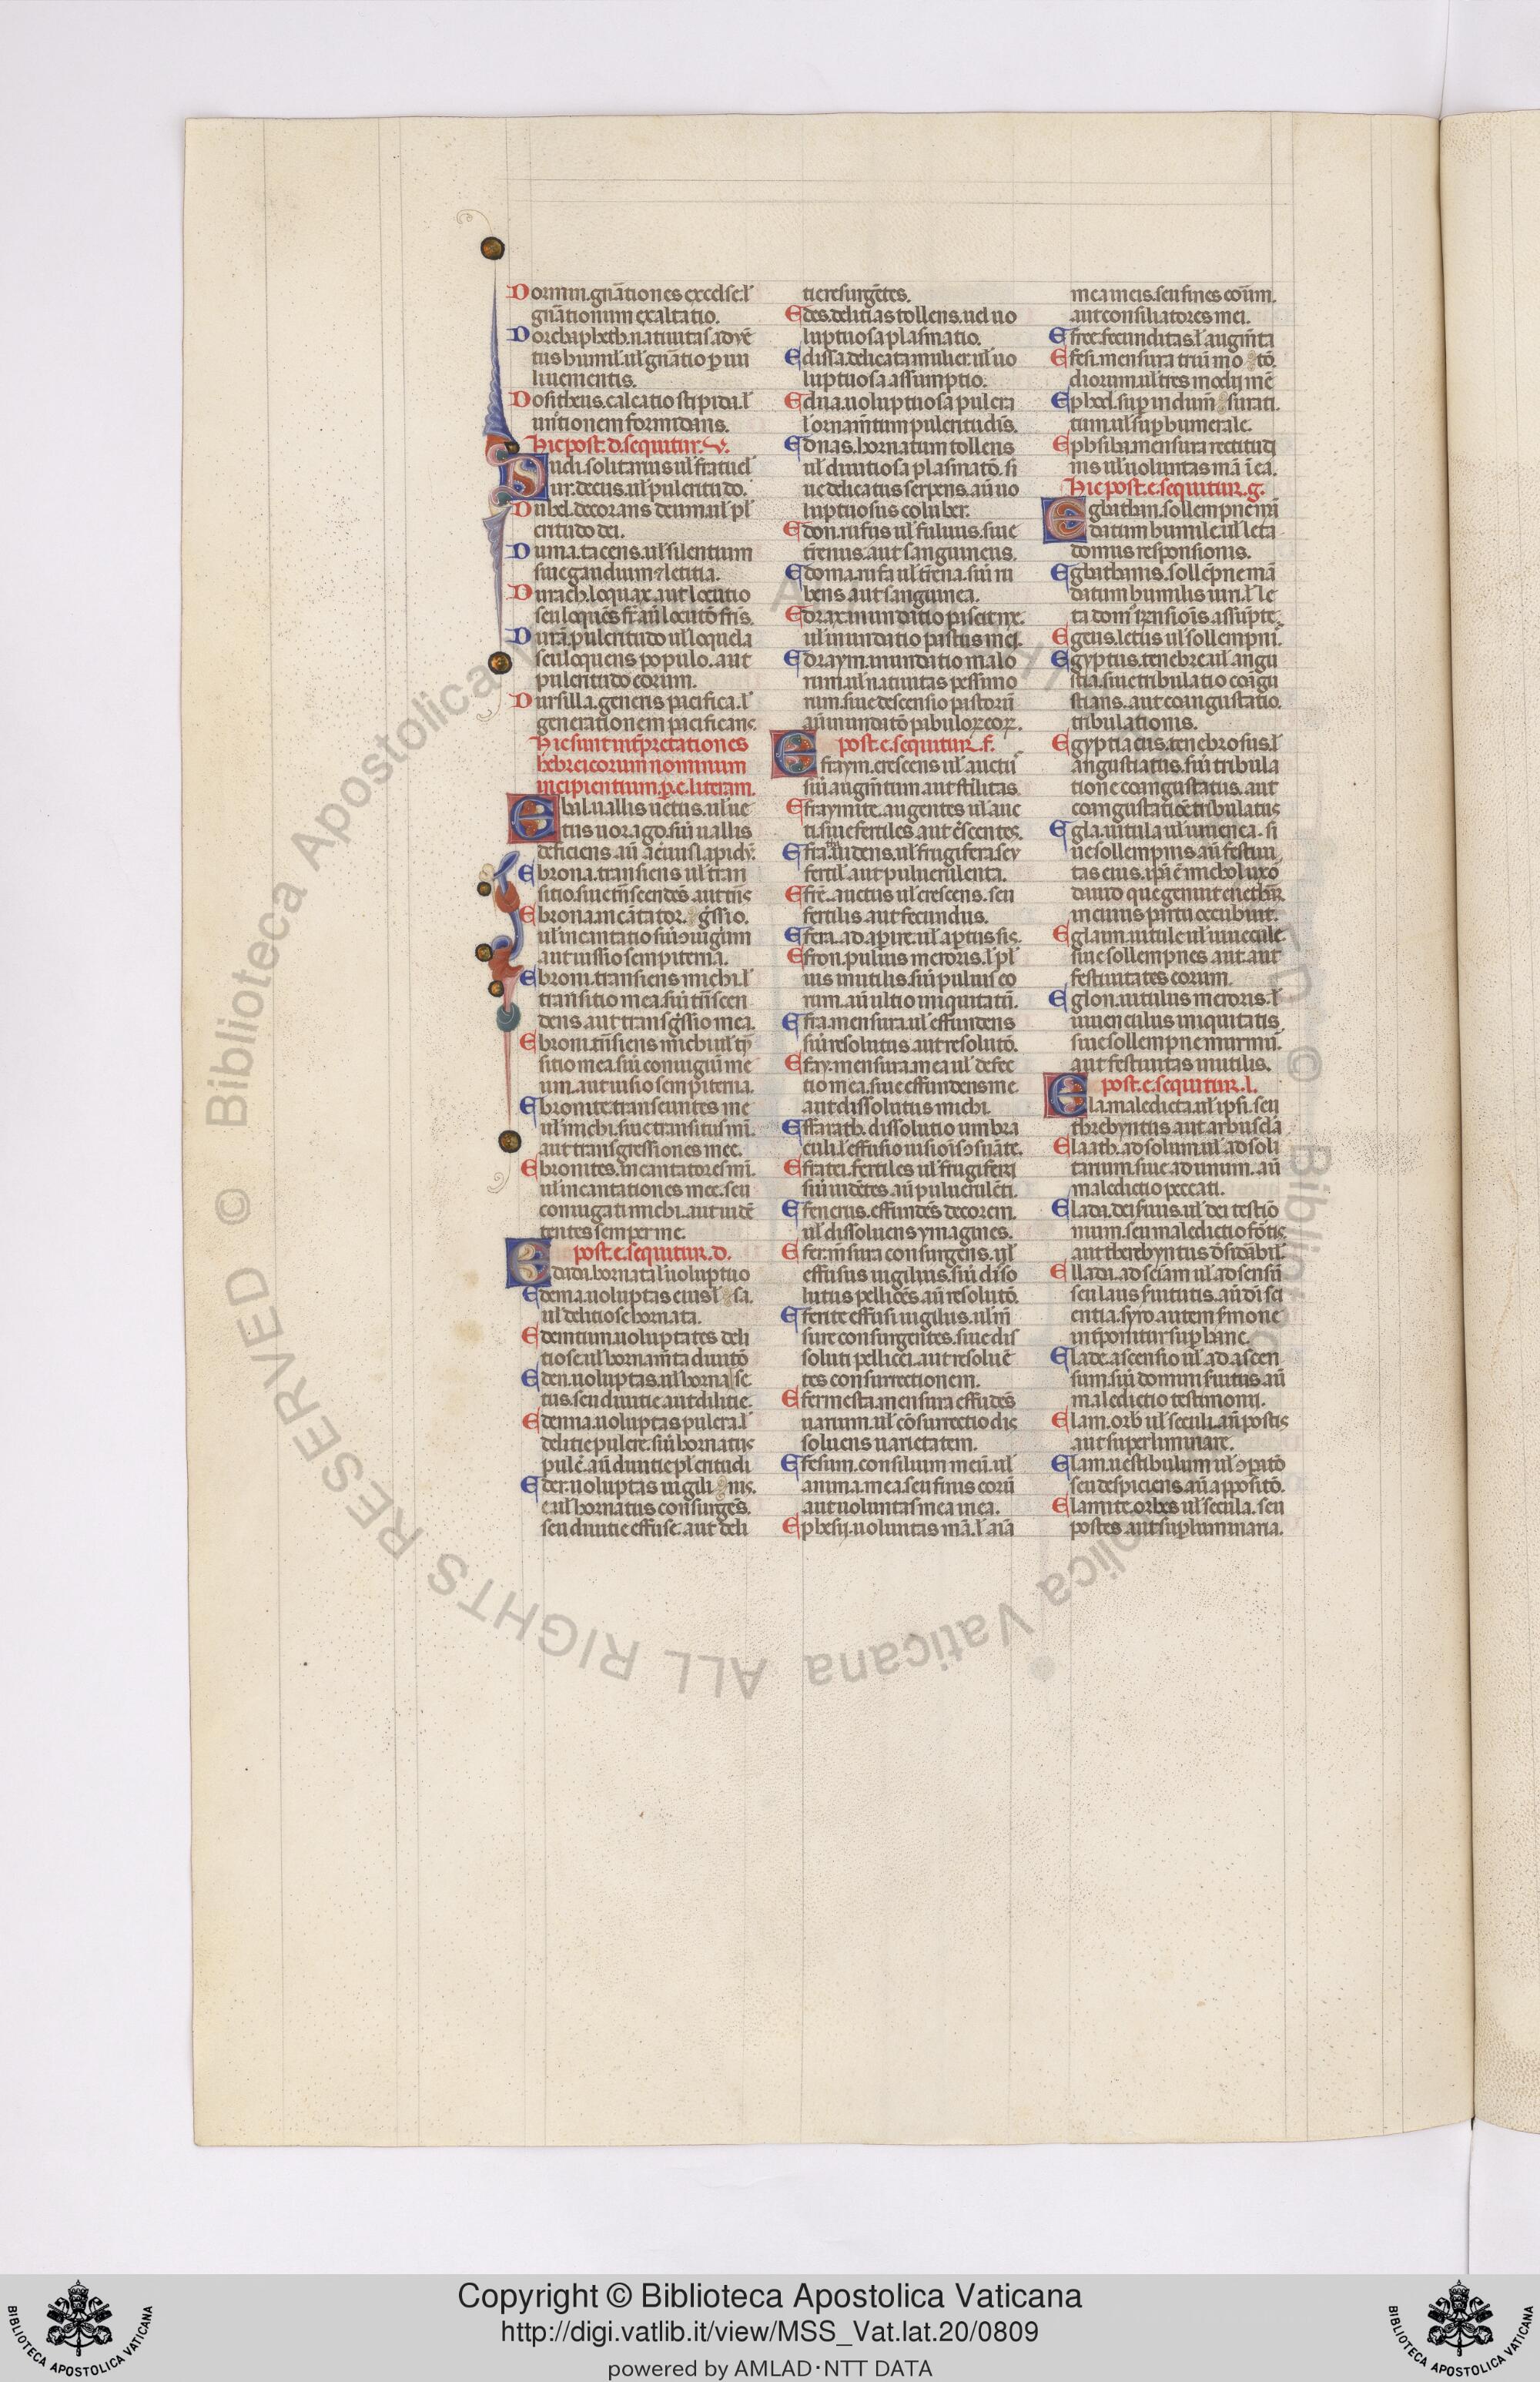 Dornim. gñationes excelse. l'
gñationum exaltatio.
Dorchapheth. natiuitas adue᷑
tus humil' ul' gñatio puu
liuementis.
Dositheus. calcatio stipidi. l'
unitionem formidans.
Hic post. d. sequitur. v.
Sudi. solitarius ul' fratuel'
ur. decus. ul' pulcritudo.
Dubel. decorans deum. ul' pl'
critudo dei.
Duma. tacens. ul' silentium
siue gaudium ⁊ letitia.
Durach. loquax. aut locutio
seu loquēs fr̄i aū locutō fris.
Durā. pulcritudo ul' loquela
seu loquens populo. aut
pulcritudo eorum.
Dursilla. generis pacifica. l'
generationem pacificans.
Hic sunt intp̄retationes
hebreicorum nominum
incipientium. p. e. literam.
Ebil. uallis uetus. ul' ue
tus uorago. siū uallis
deficiens. aū
Ebrona. transiens ul' tran
sitio. siue tn̄scendēs. aut
Ebrona. incātator. gressio.
ul' incantatio siū ↄiugium
aut iussio sempiterna.
Ebroni. transiens michi. l'
transitio mea. siū tn̄scen
dens. aut transgssio mea.
Ebroni. tn̄siens michi ul'
sitio mea siū coniugiū me
um. aut uisio sempiterna.
Ebronite. transeuntes me
ul' michi. siue transitus mi.
aut transgressiones mee.
Ebronites. incantatores mi.
ul' incantationes mee. seu
coniugati michi. aut uidē
tentes semper me.
E post. e. sequitur. d.
didi. hornata l' uoluptuo
Edema. uoluptas eius l' sa.
ul' delitiose hornata.
Edemtum. uoluptates deli
tiose ul' hornam̄ta diuitō
Eden. uoluptas. ul' horna se
tus. seu diuitie. aut dilitie.
Edenna. uoluptas pulcra. l'
delitie pulcre. siū hornatus
pulc̄. aū diuitie pl'critudi
Eder. uoluptas uigili nis.
e ul' hornatus consurgēs.
seu diuitie effuse. aut deli
tie resurgētes.
Edes. delitias tollens. uel uo
luptuosa plasmatio.
Edissa. delicata mulier. ul' uo
luptuosa assumptio.
Edna. uoluptuosa pulcra
l' ornam̄tum pulcritudis̄.
Ednas. hornatum tollens
ul' diuitiosa plasmatō. si
ue delicatus serpens. aū uo
luptuosus coluber.
Edon. rufus ul' fuluus. siue
tr̄enus. aut sanguineus.
Edoma. rufa ul' tr̄ena. siū ru
bens aut sanguinea.
Edrax. inundatio
ul' inundatio pastus mei.
Edraym. inundatio malo
rum. ul' natiuitas pessimo
rum. siue descensio pastorū
aū inundatō pabuloꝝ eoꝝ.
E post. e. sequitur. f.
fraym. crescens ul' auctū
siū augm̄tum aut ftilitas.
Efraymite. augentes ul' auc
ti. siue fertiles. aut c̄scentes.
Efra. uidens. ul' frugifera seu
fertil'. aut puluerulenta.
Efrē. auctus ul' crescens. seu
fertilis aut fecundus.
Efera. ad aperire. ul' aptus sis.
Efron. puluis meroris. l' pl'
uis inutilis. siū puluis eo
rum. aū ultio iniquitatū.
Efra. mensura. ul' effundens
siū resolutus. aut resolutō.
Efay. mensura mea ul' defec
tio mea. siue effundens me.
aut dissolutus michi.
Effarath. dissolutio umbra
culi. l' effusio uisiois̄
Efratei. fertiles ul' frugiferi
siū uidētes. aū puluerulēti.
Efenenis. effundēs decorem.
ul' dissoluens ymagines.
Efer. m̄sura consurgens. ul'
effusus uigilius. siū diso
lutus pellicēs. aū resolutō.
Eferite. effusi uigilius. ul' m̄
sure consurgentes. siue dis
soluti pellicei. aut resoluē
tes consurrectionem.
Efermesta. mensura effūdēs
uarium. ul' cōsurrectio dis
soluens uarietatem.
Efesum. consilium meū. ul'
anima mea. seu finis eorū
aut uoluntas mea in ea.
Ephesij. uoluntas mā. l' aiā
mea in eis. seu fines eorum.
aut consiliatores mei.
Efree. fecunditas. l' augm̄ta
Efesi. mensura triū mo tō.
diorum. ul' tres modij mē
Ephod. sup indum̄ surati.
tum. ul' sup humerale.
Ephsiba. mensura rectitud
inis ul' uoluntas mā ī ea.
Hic post. e. sequitur. g.
Egbithin. sollempne mi
datum humile ul' leta
domus responsionis.
Egbithinis. sollēpne mā
datum humilis uiri. l' le
ta dom' rn̄sioīs assūpte.
Egeus. letus ul' sollempni.
Egyptus. tenebre. ul' angu
stia. siue tribulatio coāgu
stians. aut coangustatio.
tribulationis.
Egyptiacus. tenebrosus. l'
angustiatus. siū tribula
tione coangustatus. aut
coangustatiōe tribulatus
Egla. uitula ul' iuuenca. si
ue sollempnis. aū festiui
tas eius. ip̄a ē michol uxō
dauid que genuit
in cuius partu occubuit.
Eglaim. uitule ul' iuuencule.
siue sollempnes aut. aut
festiuitates eorum.
Eglon. uitulus meroris. l'
iuuenculus iniquitatis.
siue sollempne murmu.
aut festiuitas inutilis.
E post. e. sequitur. l.
la. maledicta. ul' ipsi. seu
therebyntus aut arbuscla
Elaath. ad solum. ul' ad soli
tarium. siue ad unum. aū
maledictio peccati.
Eladi. dei finis. ul' dei testiō
nium. seu maledictio
aut therebyntus
Elladi. ad sciam ul' ad sensū
seu laus fnitutis. aū di sci
entia. syro autem fmone
intp̄onitur sup hanc.
Elade. ascensio ul' ad ascen
sum. siū domini fuitus. aū
maledictio testimonij.
Elam. orb' ul' seculi. aū postis
aut superliminare.
Elam. uestibulum ul' ↄpatō
seu despiciens aū appositō.
Elamite. orbes ul' secula. seu
postes. aut supliminaria.
© Biblioteca Apostolica Vaticana ALL RIGHTS RESERVED
Copyright © Biblioteca Apostolica Vaticana
http://digi.vatlib.it/view/MSS_Vat.lat.20/0809
powered by AMLAD·NTT DATA
BIBLIOTECA APOSTOLICA VATICANA
BIBLIOTECA APOSTOLICA VATICANA